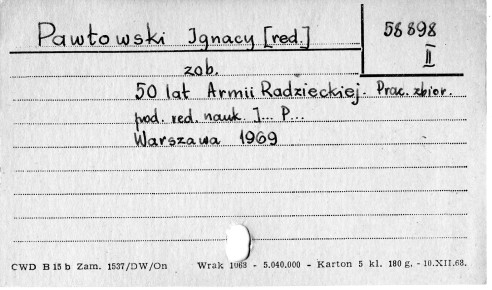 Pawłowski Ignacy [red.]
58898
II
zob.
50 lat Armii Radzieckiej. Prac. zbior.
pod. red. nauk. I... P...
Warszawa 1969
CWD B 15 b Zam. 1537/DW/On Wrak 1963 - 5.040.000 - Karton 5 kl. 180 g. - 10.XII.63.